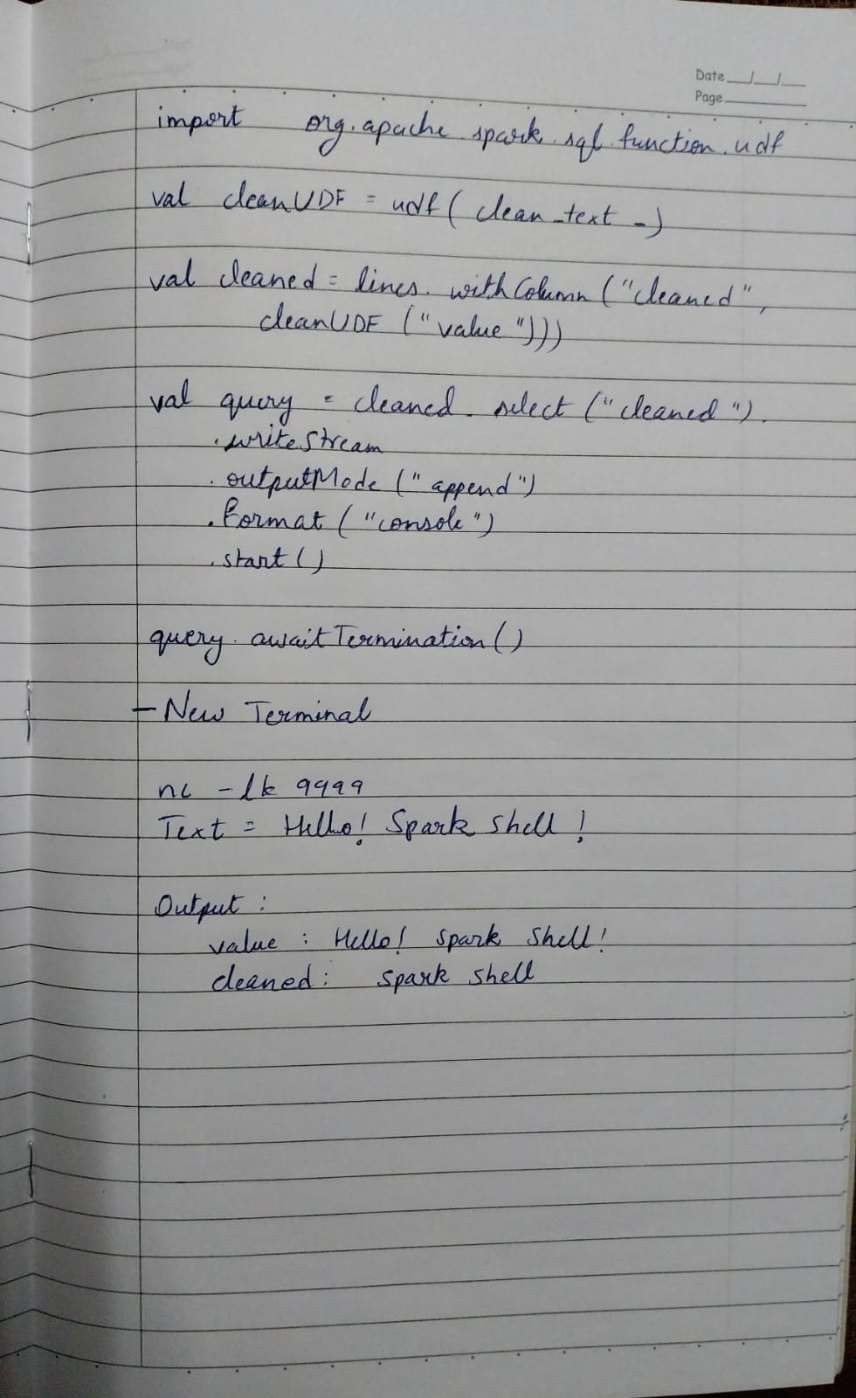 Date __/__/__
Page
import org.apache spark.sql.function.udf
val cleanUDF = udf ( clean_text _)
val cleaned = lines. withColumn ("cleaned",
cleanUDF ("value")))
val query = cleaned. select ("cleaned").
.writeStream
.outputMode ("append")
.format ("console")
.start ()
query. awaitTermination ()
- New Terminal
nc -lk 9999
Text = Hello! Spark shell !
Output :
value : Hello! spark shell!
cleaned : spark shell